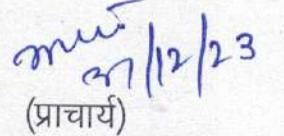 31/12/23
(प्राचार्य)